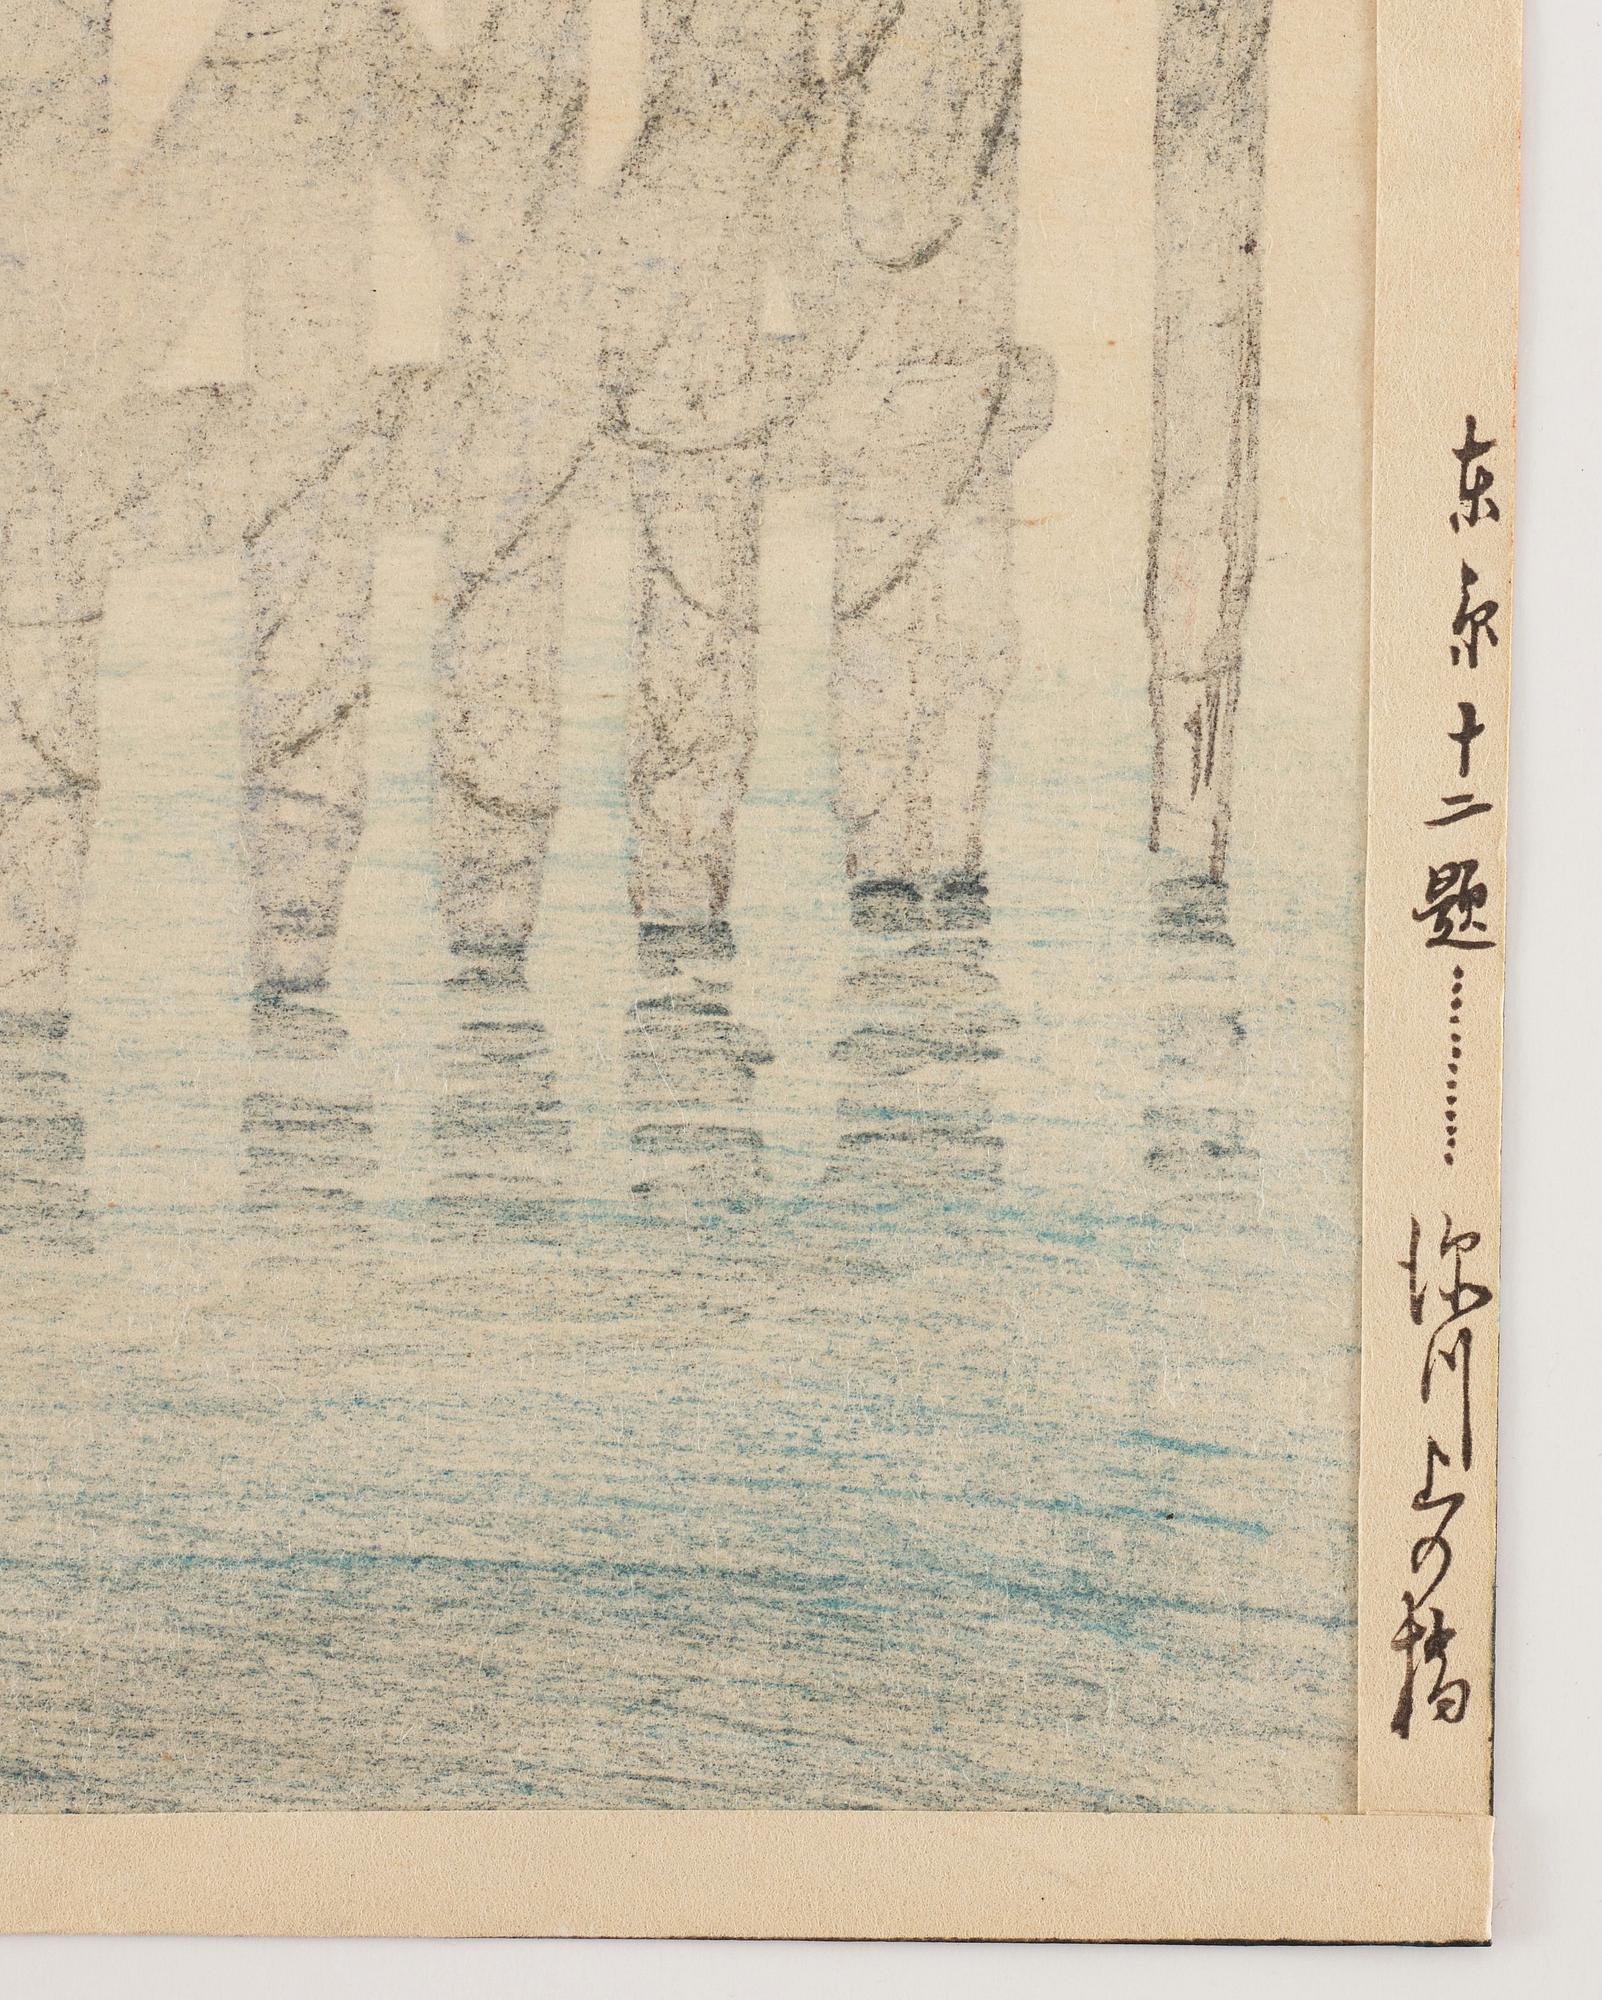 東京十二題............深川上の橋